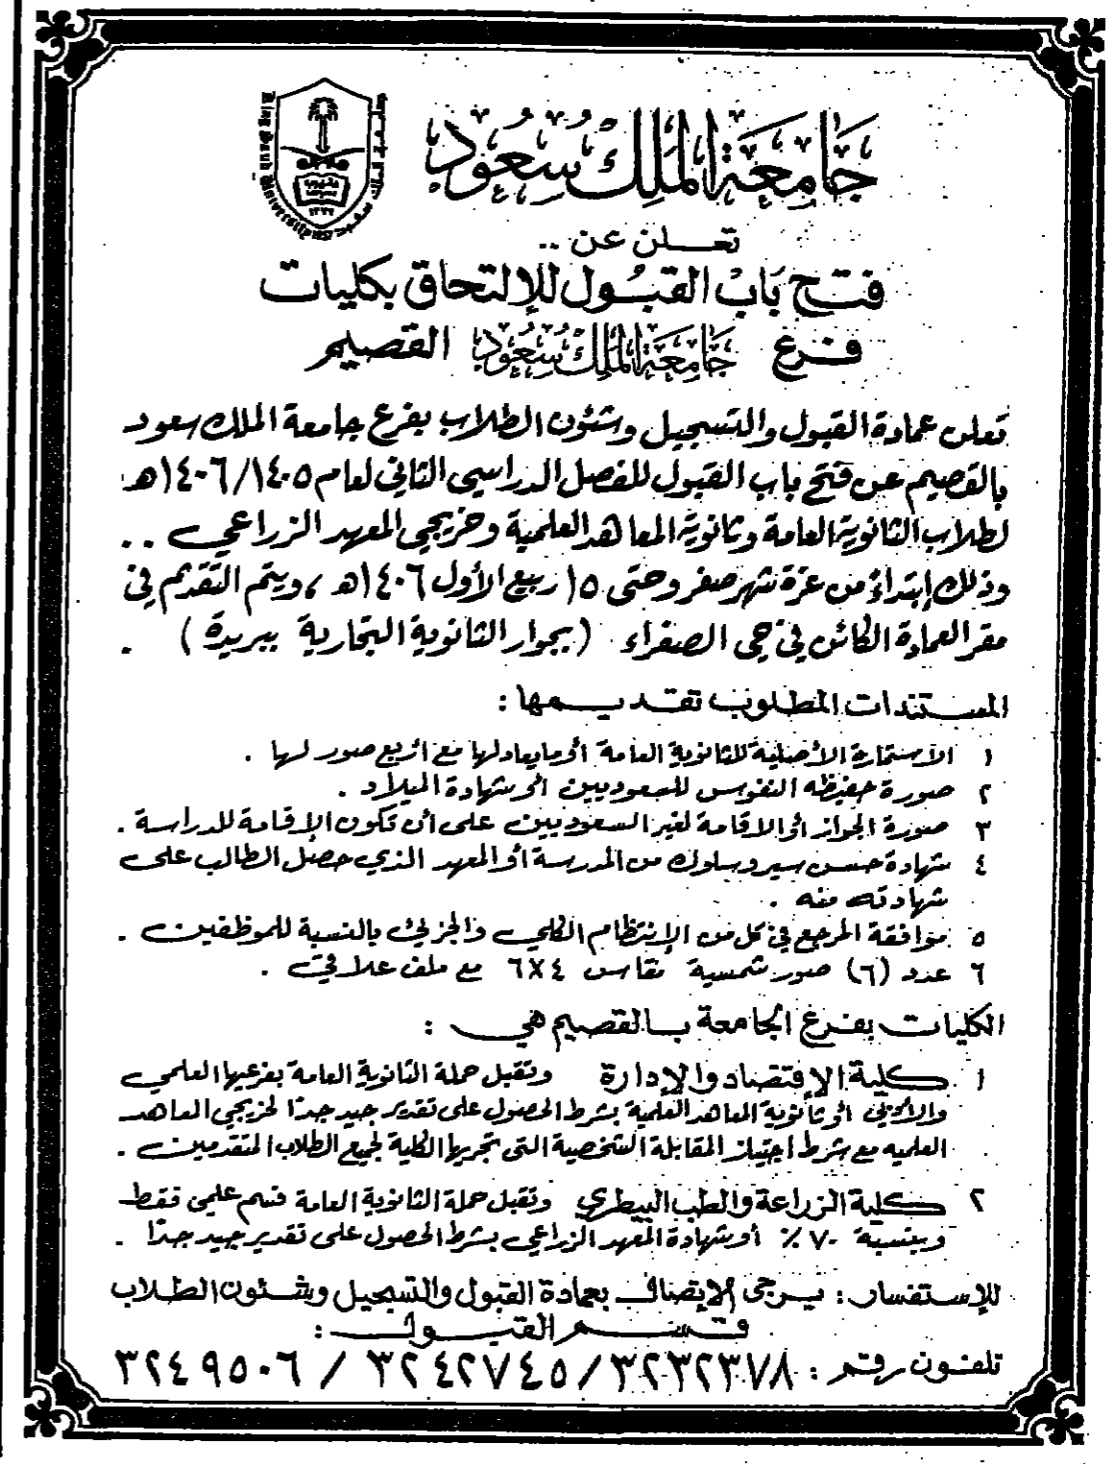 جامعة الملك سعود
King Saud University
١٣٧٧
تعلن عن ..
فتح باب القبول للإلتحاق بكليات
فرع جامعة الملك سعود القصيم
تعلن عمادة القبول والتسجيل وشئون الطلاب بفرع جامعة الملك سعود
بالقصيم عن فتح باب القبول للفصل الدراسي الثاني لعام ١٤٠٥/١٤٠٦هـ
لطلاب الثانوية العامة وثانوية المعاهد العلمية وخريجي المعهد الزراعي ..
وذلك إبتداءً من غرة شهر صفر وحتى ١٥ ربيع الأول ١٤٠٦هـ ، ويتم التقديم في
مقر العمادة الكائن في حي الصفراء ( بجوار الثانوية التجارية ببريدة ) .
المستندات المطلوب تقديمها :
١ الاستمارة الأصلية للثانوية العامة أو مايعادلها مع أربع صور لها .
٢ صورة حفيظه النفوس للسعوديين أو شهادة الميلاد .
٣ صورة الجواز أو الاقامة لغير السعوديين على أن تكون الإقامة للدراسة .
٤ شهادة حسن سير وسلوك من المدرسة أو المعهد الذي حصل الطالب على
شهادته منه .
٥ موافقة المرجع في كل من الإنتظام الكلي والجزئي بالنسبة للموظفين .
٦ عدد (٦) صور شمسية مقاس ٤×٦ مع ملف علاقي .
الكليات بفرع الجامعة بالقصيم هي :
١ كلية الإقتصاد والإدارة وتقبل حملة الثانوية العامة بفرعيها العلمي
والأدبي أو ثانوية المعاهد العلمية بشرط الحصول على تقدير جيد جدًا لخريجي المعاهد
العلميه مع شرط اجتياز المقابلة الشخصية التى تجريها الكلية لجميع الطلاب المتقدمين .
٢ كلية الزراعة والطب البيطري وتقبل حملة الثانوية العامة قسم علمي فقط
وبنسبة ٧٠٪ أو شهادة المعهد الزراعي بشرط الحصول على تقدير جيد جدًا .
للإستفسار : يرجى الإتصال بعمادة القبول والتسجيل وشئون الطلاب
قسم القبول :
تلفون رقم : ٣٢٣٢٣٧٨ / ٣٢٤٢٧٤٥ / ٣٢٤٩٥٠٦